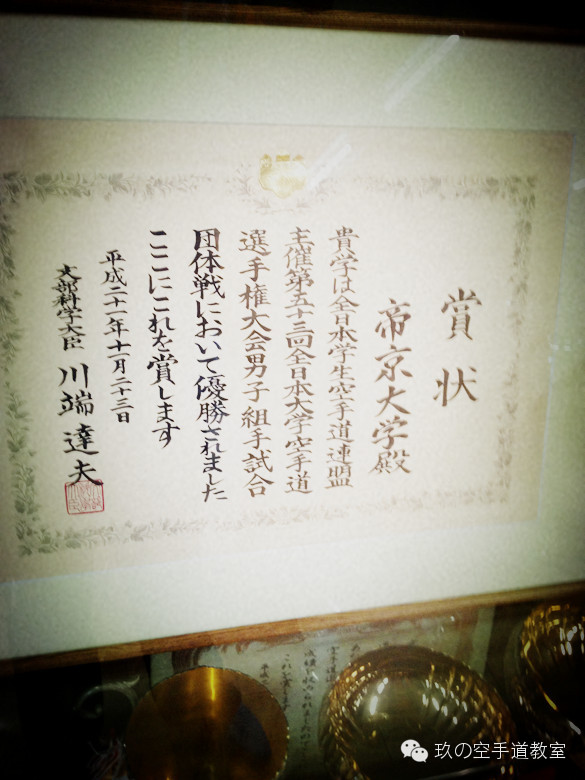 賞状
帝京大学殿
貴学は全日本学生空手道連盟
主催第五十三回全日本大学空手道
選手権大会男子組手試合
団体戦において優勝されました
ここにこれを賞します
平成二十一年十一月二十三日
文部科学大臣 川端達夫
玖の空手道教室